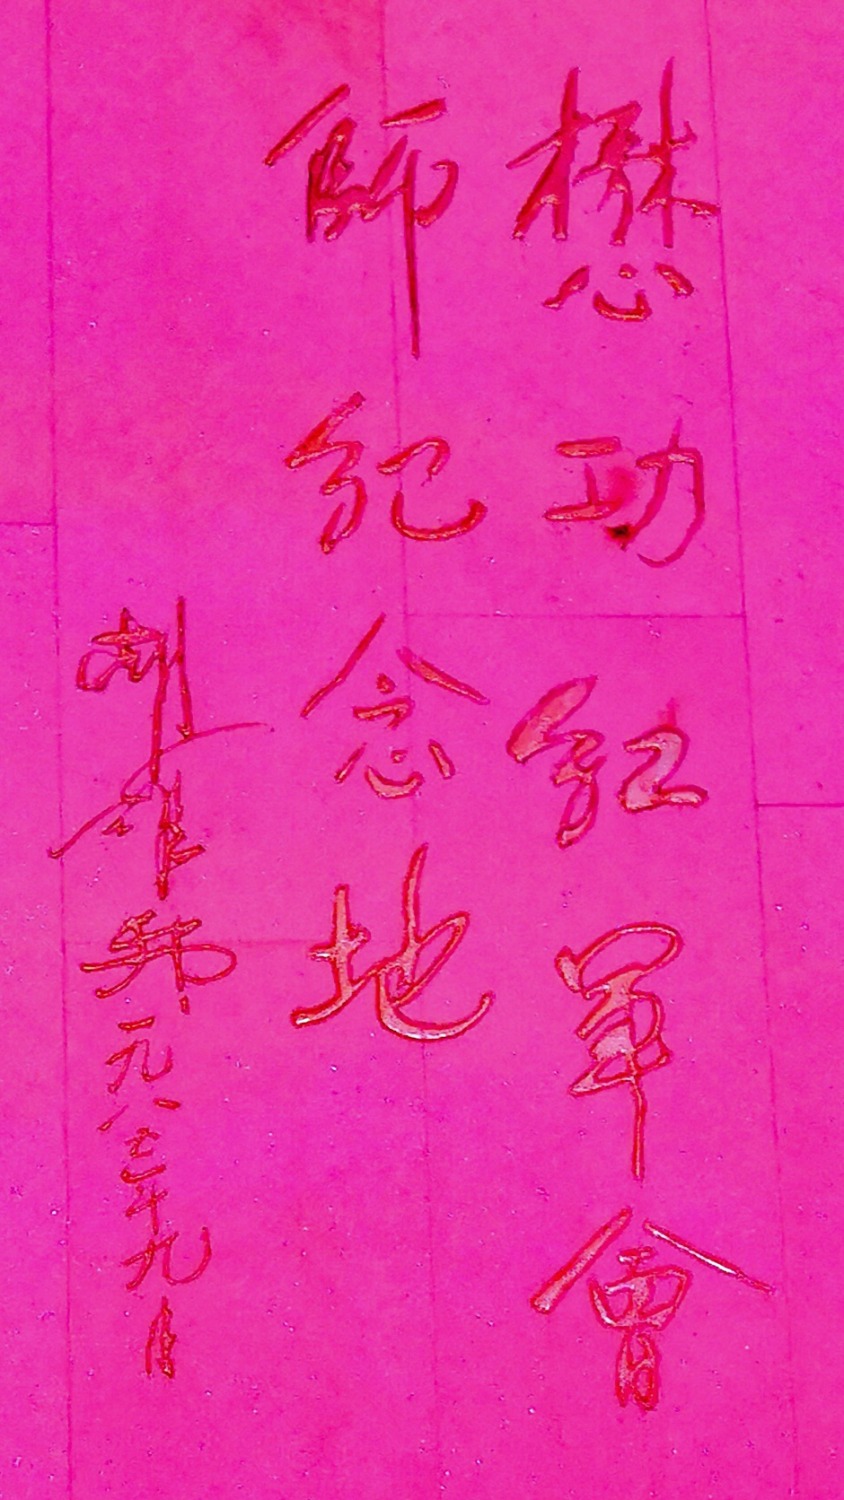 懋功红軍會
師紀念地
胡耀邦一九八三年九月